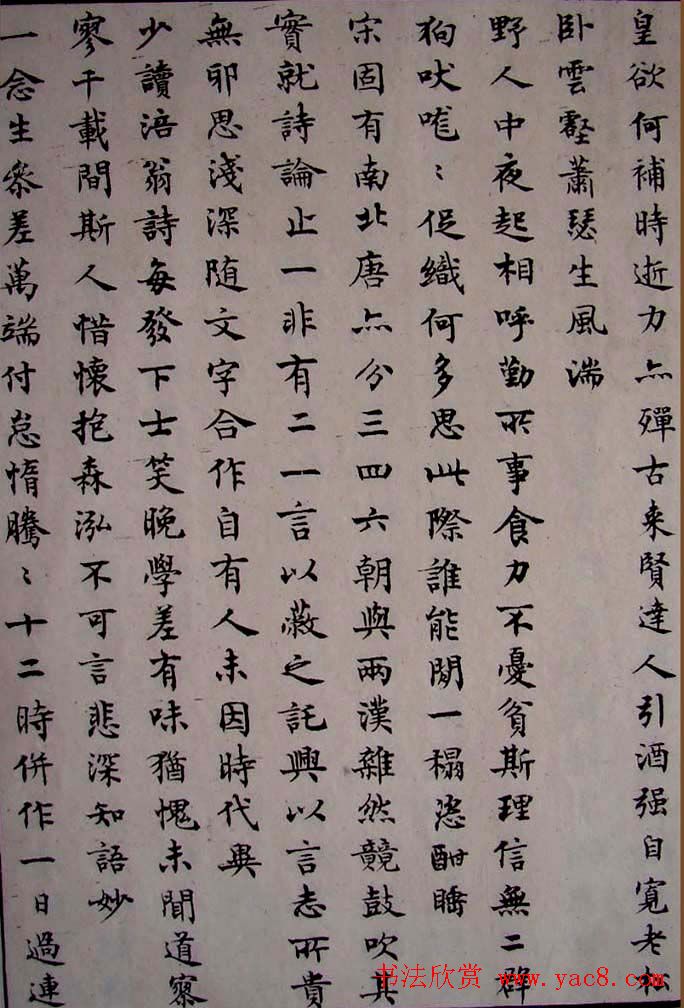 皇欲何補時逝力亦殫古来賢達人引酒强自寬老松
卧雲壑蕭瑟生風湍
野人中夜起相呼勤所事食力不憂貧斯理信無二群
狗吠〻促織何多思此際誰能閑一榻恣酣睡
宋固有南北唐亦分三四六朝與兩漢雜然競鼓吹其
實就詩論止一非有二一言以蔽之託興以言志所貴
無邪思淺深随文字合作自有人未因時代異
少讀涪翁詩每發下士笑晚學差有味猶愧未聞道寥
寥千載間斯人惜懷抱森泓不可言悲深知語妙
一念生參差萬端付怠惰騰〻十二時併作一日過連
书法欣赏 www.yac8.com